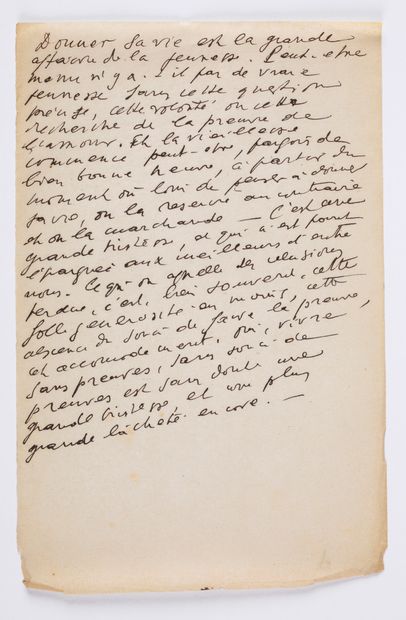 Donner sa vie est la grande
affaire de la jeunesse. Peut-etre
meme n'y a-t-il pas de vraie
jeunesse sans cette question
cette volonté ou cette
recherche de la preuve de
l'amour. Et la vieillesse
commence peut-etre, parfois de
bien bonne heure, à partir du
moment où loin de penser à donner
sa vie, on la reserve au contraire
et on la marchande — C'est une
grande tristesse, et qui n'est point
épargnée aux meilleurs d'entre
nous. Ce qu'on appelle des illusions
perdues, c'est, bien souvent, cette
folle générosité en moins, cette
absence du souci de faire la preuve,
cet accomodement. oui, vivre
sans preuves, sans souci de
preuves est sans doute une
grande tristesse et une plus
grande lâcheté encore. —